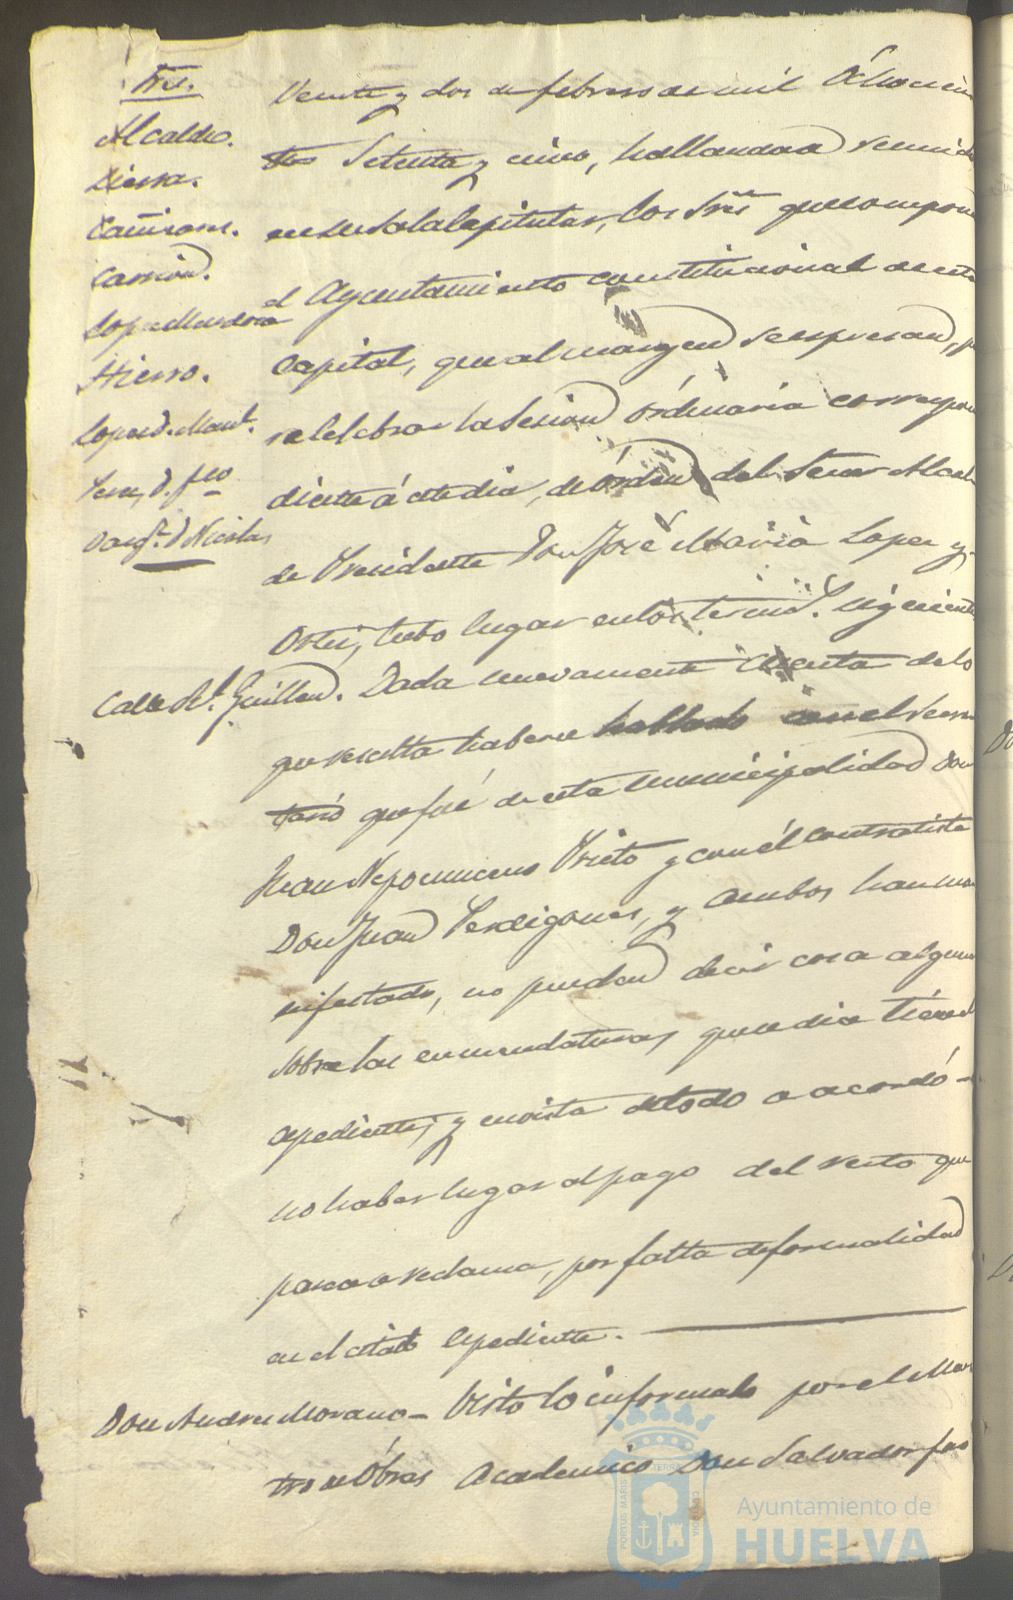 Sres.
Alcalde.
Sierra.
Carrion.
Lopez Mendoza
Hierro.
Lopez D. Manl.
D. Fco
D. Nicolas
Veinte y dos de febrero de mil Ochocien
tos Setenta y cinco, hallandose reunidos
en su Sala Capitular, los Sres que compone
el Ayuntamiento constitucional de esta
capital, que al margen se espresan, pa
ra celebrar la Sesion órdinaria correspon
diente á este dia, de órden del Señor Alcal
de Presidente Don José Maria Lopez y
tubo lugar en los termins. siguientes
Calle Rl. Guillen. Dada nuevamente cuenta de lo
que resulta haberse hablado con el Secre
tario que fué de esta municipalidad Don
Juan Nepomuceno Prieto y con él contratista
Don Juan Perdigones, y ambos han ma
nifestado, no pueden decir cosa alguna
sobre las enmendaturas que se dice tiene el
espediente; y en vista de todo se acordó
no haber lugar al pago del resto que
parece se reclama, por falta de formalidad
en el citado espediente.
Don Andres Morano - Visto lo informado por el Maes
tro de Obras Academico Don Salvador
PORTUS MARIS
CUSTODIA
Ayuntamiento de
HUELVA